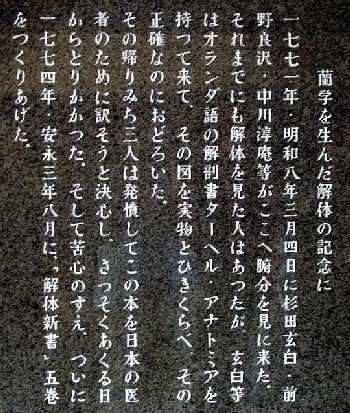 蘭学を生んだ解体の記念に
一七七一年・明和八年三月四日に杉田玄白・前
野良沢・中川淳庵等がここへ腑分を見に来た。
それまでにも解体を見た人はあつたが、玄白等
はオランダ語の解剖書ターヘル・アナトミアを
持つて来て、その図を実物とひきくらべ、その
正確なのにおどろいた。
その帰りみち三人は発憤してこの本を日本の医
者のために訳そうと決心し、さつそくあくる日
からとりかかつた。そして苦心のすえ、ついに
一七七四年・安永三年八月に、「解体新書」五巻
をつくりあげた。